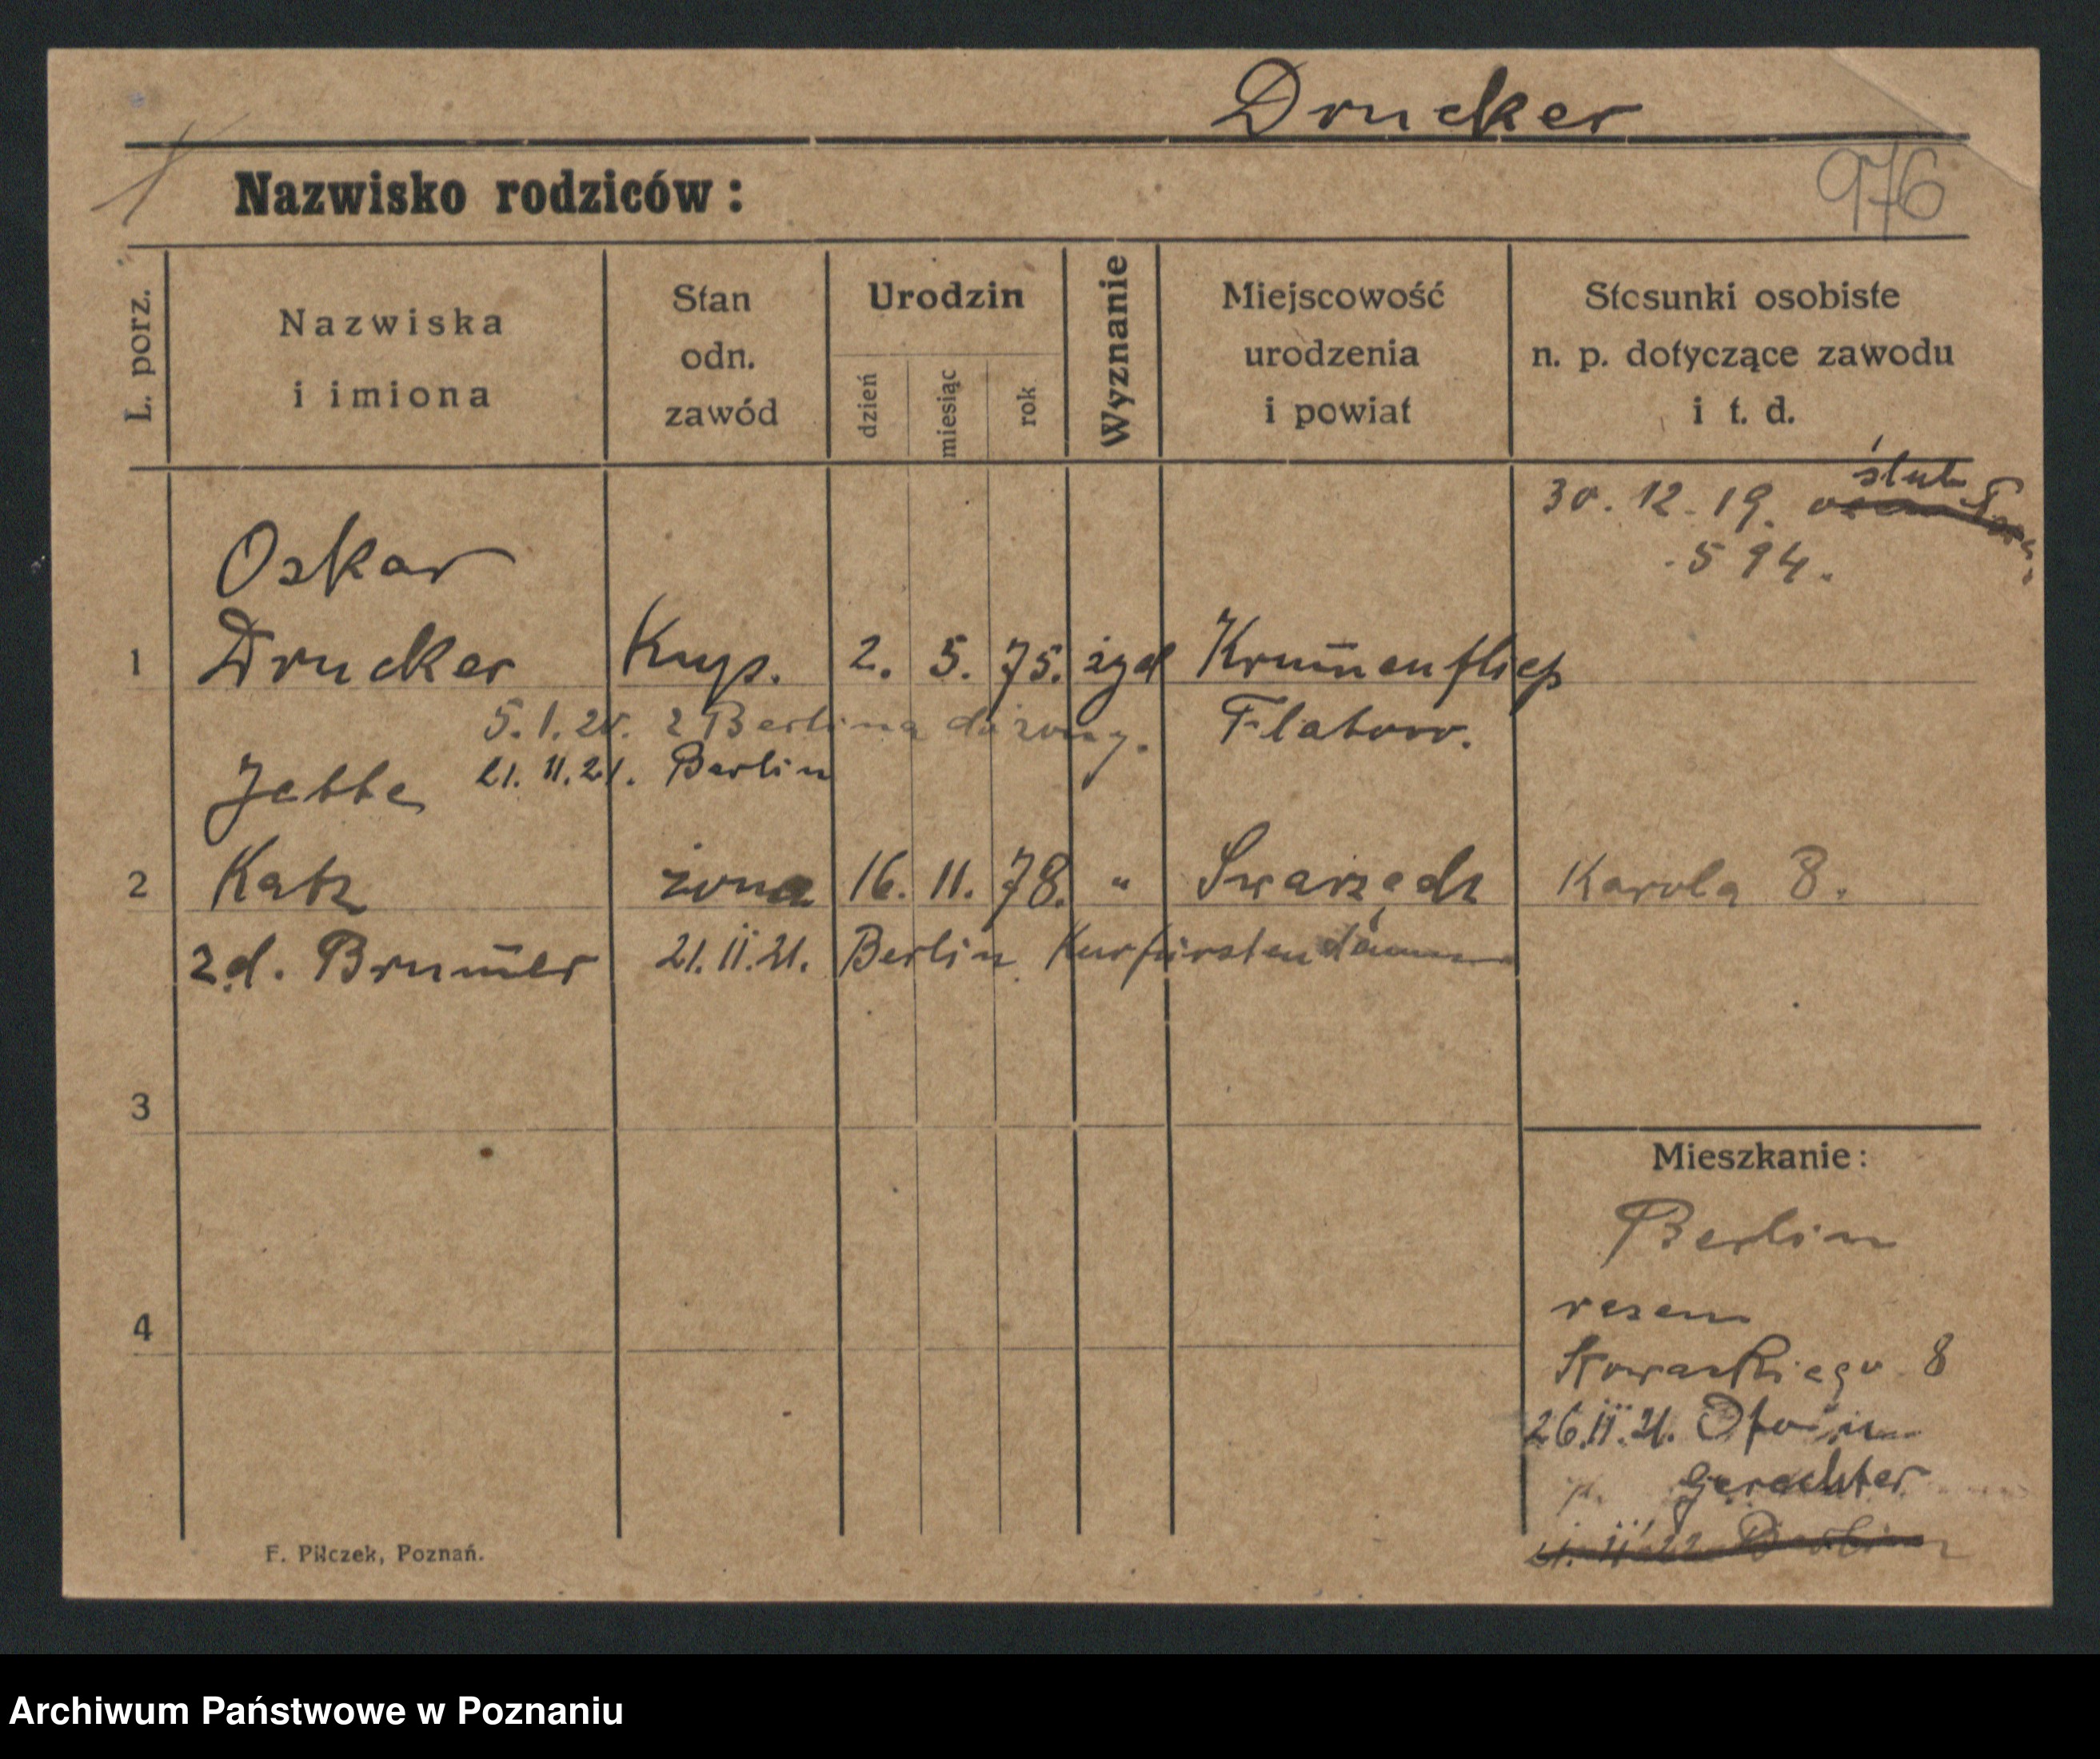 Drucker
976
Nazwisko rodziców:
L. porz.
Nazwiska
i imiona
Stan
odn.
zawód
Urodzin
dzień
miesiąc
rok
Wyznanie
Miejscowość
urodzenia
i powiat
Stosunki osobiste
n. p. dotyczące zawodu
i t. d.
ślub
30. 12. 19.
594.
Oskar
1 Drucker Kup. 2. 5. 75. żyd Krum̄enfließ
5. 1. 20. z Berlina do żony. Flatow.
Jette 21. 11. 21. Berlin
2 Katz żona 16. 11. 78. " Swarzędz Karola 8.
z d. Brum̄er 21. II. 21. Berlin Kurfürstendamm
3
4
Mieszkanie:
Berlin
razem
8
26. II. 21.
p. Gerechter
Berlin
F. Pilczek, Poznań.
Archiwum Państwowe w Poznaniu